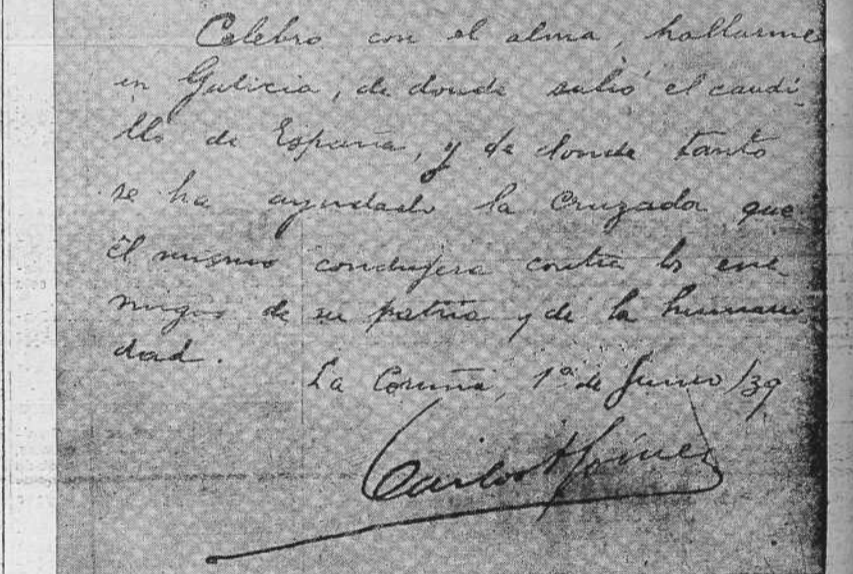 Celebro con el alma, hallarme
en Galicia, de donde salió el caudi-
llo de España, y de donde tanto
se ha ayudado la Cruzada que
él mismo condujera contra los ene-
migos de su patria y de la humani
dad.
La Coruña, 1º de Junio/39
Carlos A Gómez